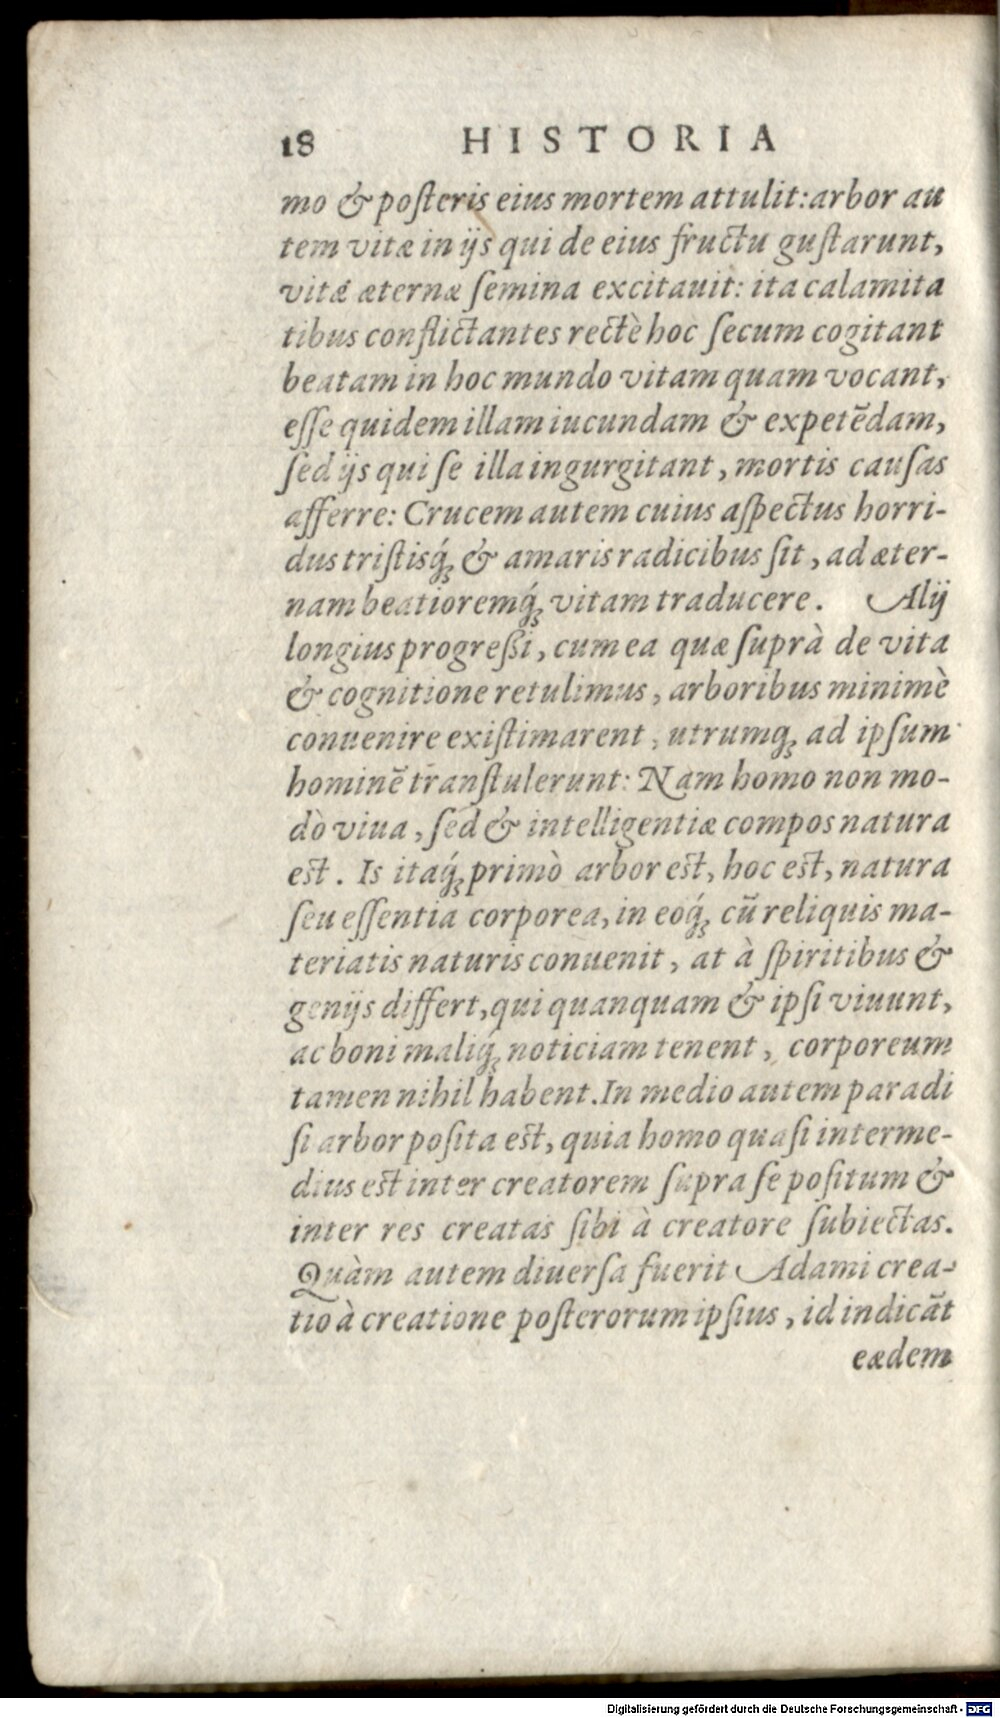 18 HISTORIA
mo & poſteris eius mortem attulit: arbor au
tem vitæ in ijs qui de eius fructu guſtarunt,
vitǽ æternæ ſemina excitauit: ita calamita
tibus conflictantes rectè hoc ſecum cogitant
beatam in hoc mundo vitam quam vocant,
eſſe quidem illam iucundam & expetēdam,
ſed ijs qui ſe illa ingurgitant, mortis cauſas
afferre: Crucem autem cuius aſpectus horri-
dus triſtisq́ꝫ & amaris radicibus ſit, ad æter-
nam beatioremq́ꝫ vitam traducere. Alij
longius progreßi, cum ea quæ ſuprà de vita
& cognitione retulimus, arboribus minimè
conuenire exiſtimarent, utrumqꝫ ad ipſum
hominē tranſtulerunt: Nam homo non mo-
dò viua, ſed & intelligentiæ compos natura
est. Is itaq́ꝫ primò arbor est, hoc est, natura
ſeu eſſentia corporea, in eoq́ꝫ cū reliquis ma-
teriatis naturis conuenit, at à ſpiritibus &
genijs differt, qui quanquam & ipſi viuunt,
ac boni maliq́ꝫ noticiam tenent, corporeum
tamen nihil habent. In medio autem paradi
ſi arbor poſita est, quia homo quaſi interme-
dius est inter creatorem ſupra ſe poſitum &
inter res creatas ſibi à creatore ſubiectas.
Quàm autem diuerſa fuerit Adami crea-
tio à creatione poſterorum ipſius, id indicāt
eædem
Digitalisierung gefördert durch die Deutsche Forschungsgemeinschaft - DFG